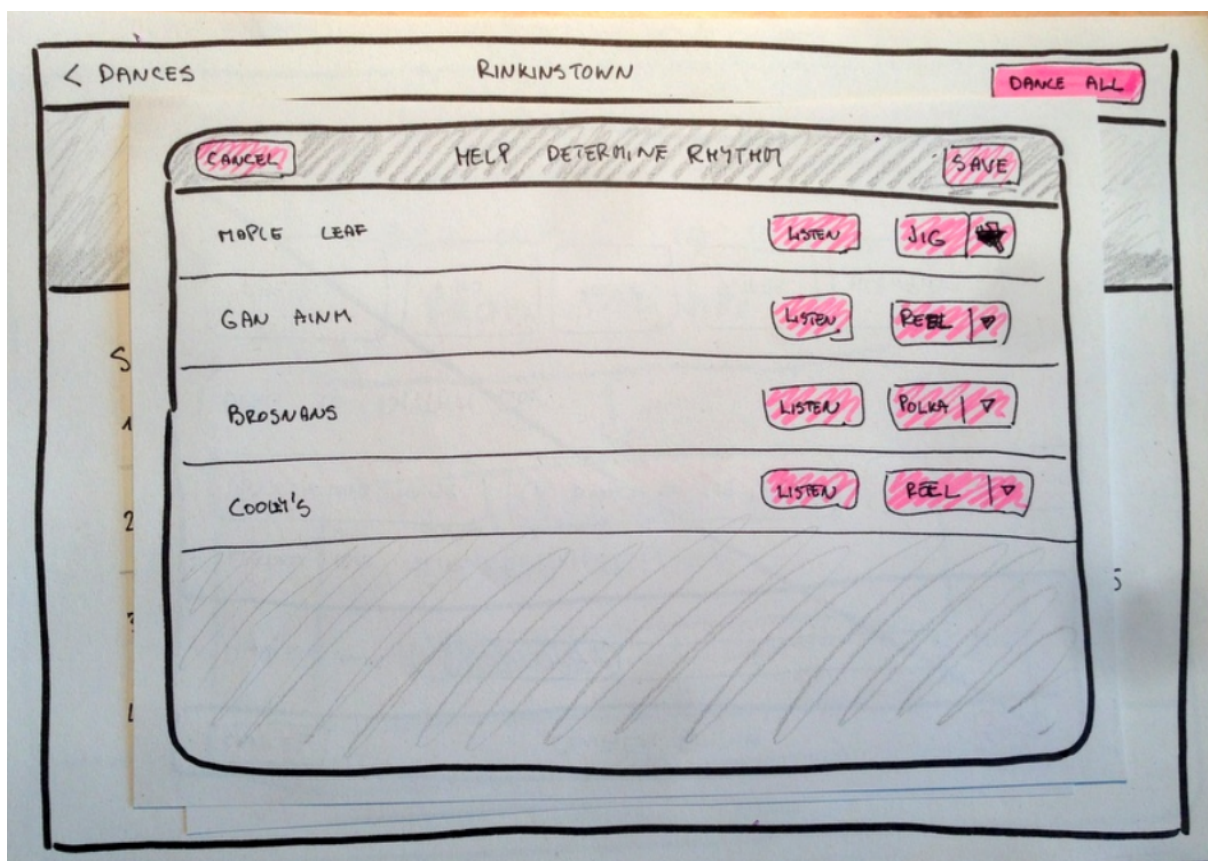 < DANCES RINKINSTOWN DANCE ALL
CANCEL HELP DETERMINE RHYTHM SAVE
MAPLE LEAF LISTEN JIG
GAN AINM LISTEN REEL
S
1
BROSNANS LISTEN POLKA
2
COOLEY'S LISTEN REEL
S
3
4